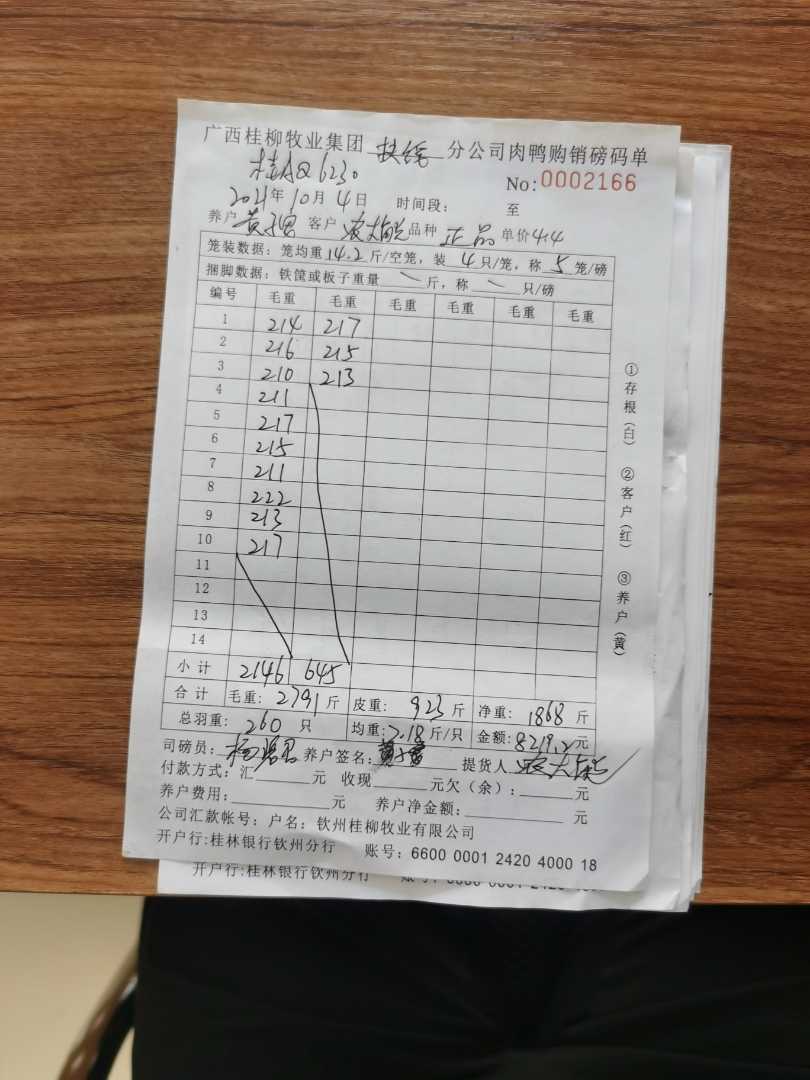 广西桂柳牧业集团 扶绥 分公司肉鸭购销磅码单
桂AQ6230
No:0002166
2021年10月4日 时间段: 至
养户 黄 客户 农大 品种 正品 单价4.4
笼装数据: 笼均重14.2斤/空笼, 装 4 只/笼, 称 5 笼/磅
捆脚数据: 铁筐或板子重量 \ 斤, 称 \ 只/磅
编号 毛重 毛重 毛重 毛重 毛重 毛重
1 214 217
2 216 215
3 210 213
4 211
5 217
6 215
7 211
8 222
9 213
10 217
11
12
13
14
小计 2146 645
合计 毛重: 2791 斤 皮重: 923 斤 净重: 1868 斤
总羽重: 260 只 均重: 7.18斤/只 金额: 8219.2元
司磅员: 养户签名: 提货人 农大
付款方式: 汇 元 收现 元欠（余）: 元
养户费用: 元 养户净金额: 元
公司汇款帐号: 户名: 钦州桂柳牧业有限公司
开户行:桂林银行钦州分行 账号: 6600 0001 2420 4000 18
①存根（白） ②客户（红） ③养户（黄）
开户行:桂林银行钦州分行